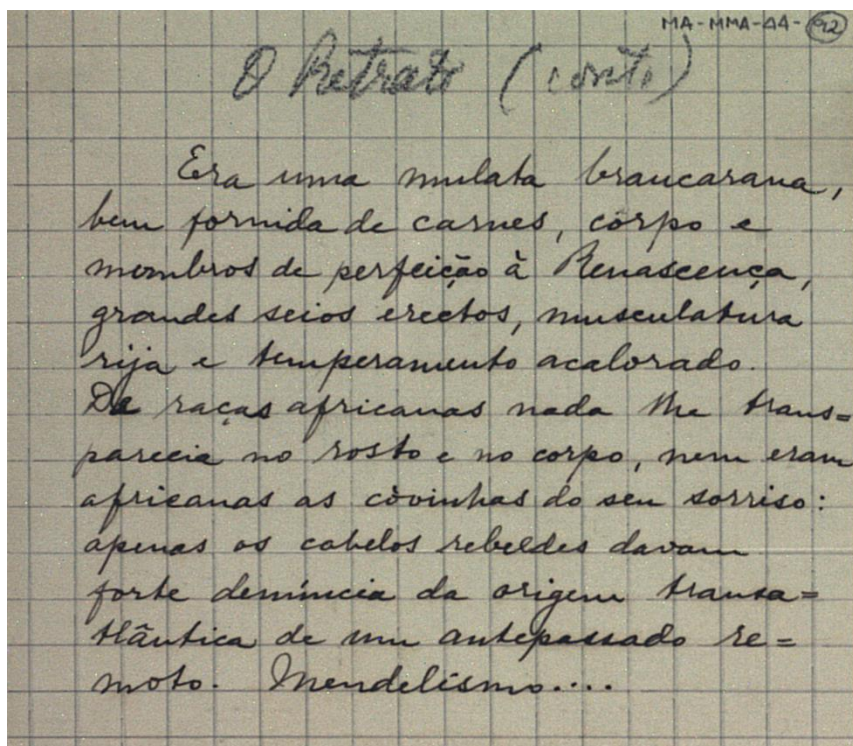 MA-MMA-44-92
O Retrato (conto)
Era uma mulata brancarana,
bem fornida de carnes, corpo e
membros de perfeição à Renascença,
grandes seios erectos, musculatura
rija e temperamento acalorado.
De raças africanas nada lhe trans=
parecia no rosto e no corpo, nem eram
africanas as còvinhas do seu sorriso:
apenas os cabelos rebeldes davam
forte denúncia da origem transa=
tlântica de um antepassado re=
moto. Mendelismo....